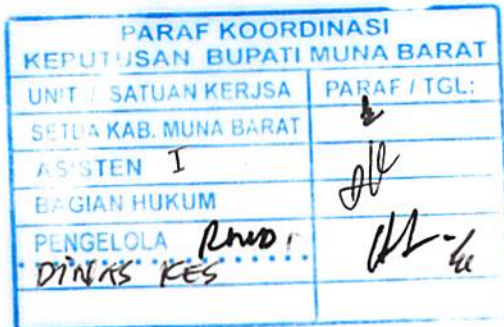 PARAF KOORDINASI
KEPUTUSAN BUPATI MUNA BARAT
UNIT / SATUAN KERJSA PARAF / TGL:
SETDA KAB. MUNA BARAT
ASISTEN I
BAGIAN HUKUM
PENGELOLA
DINAS KES